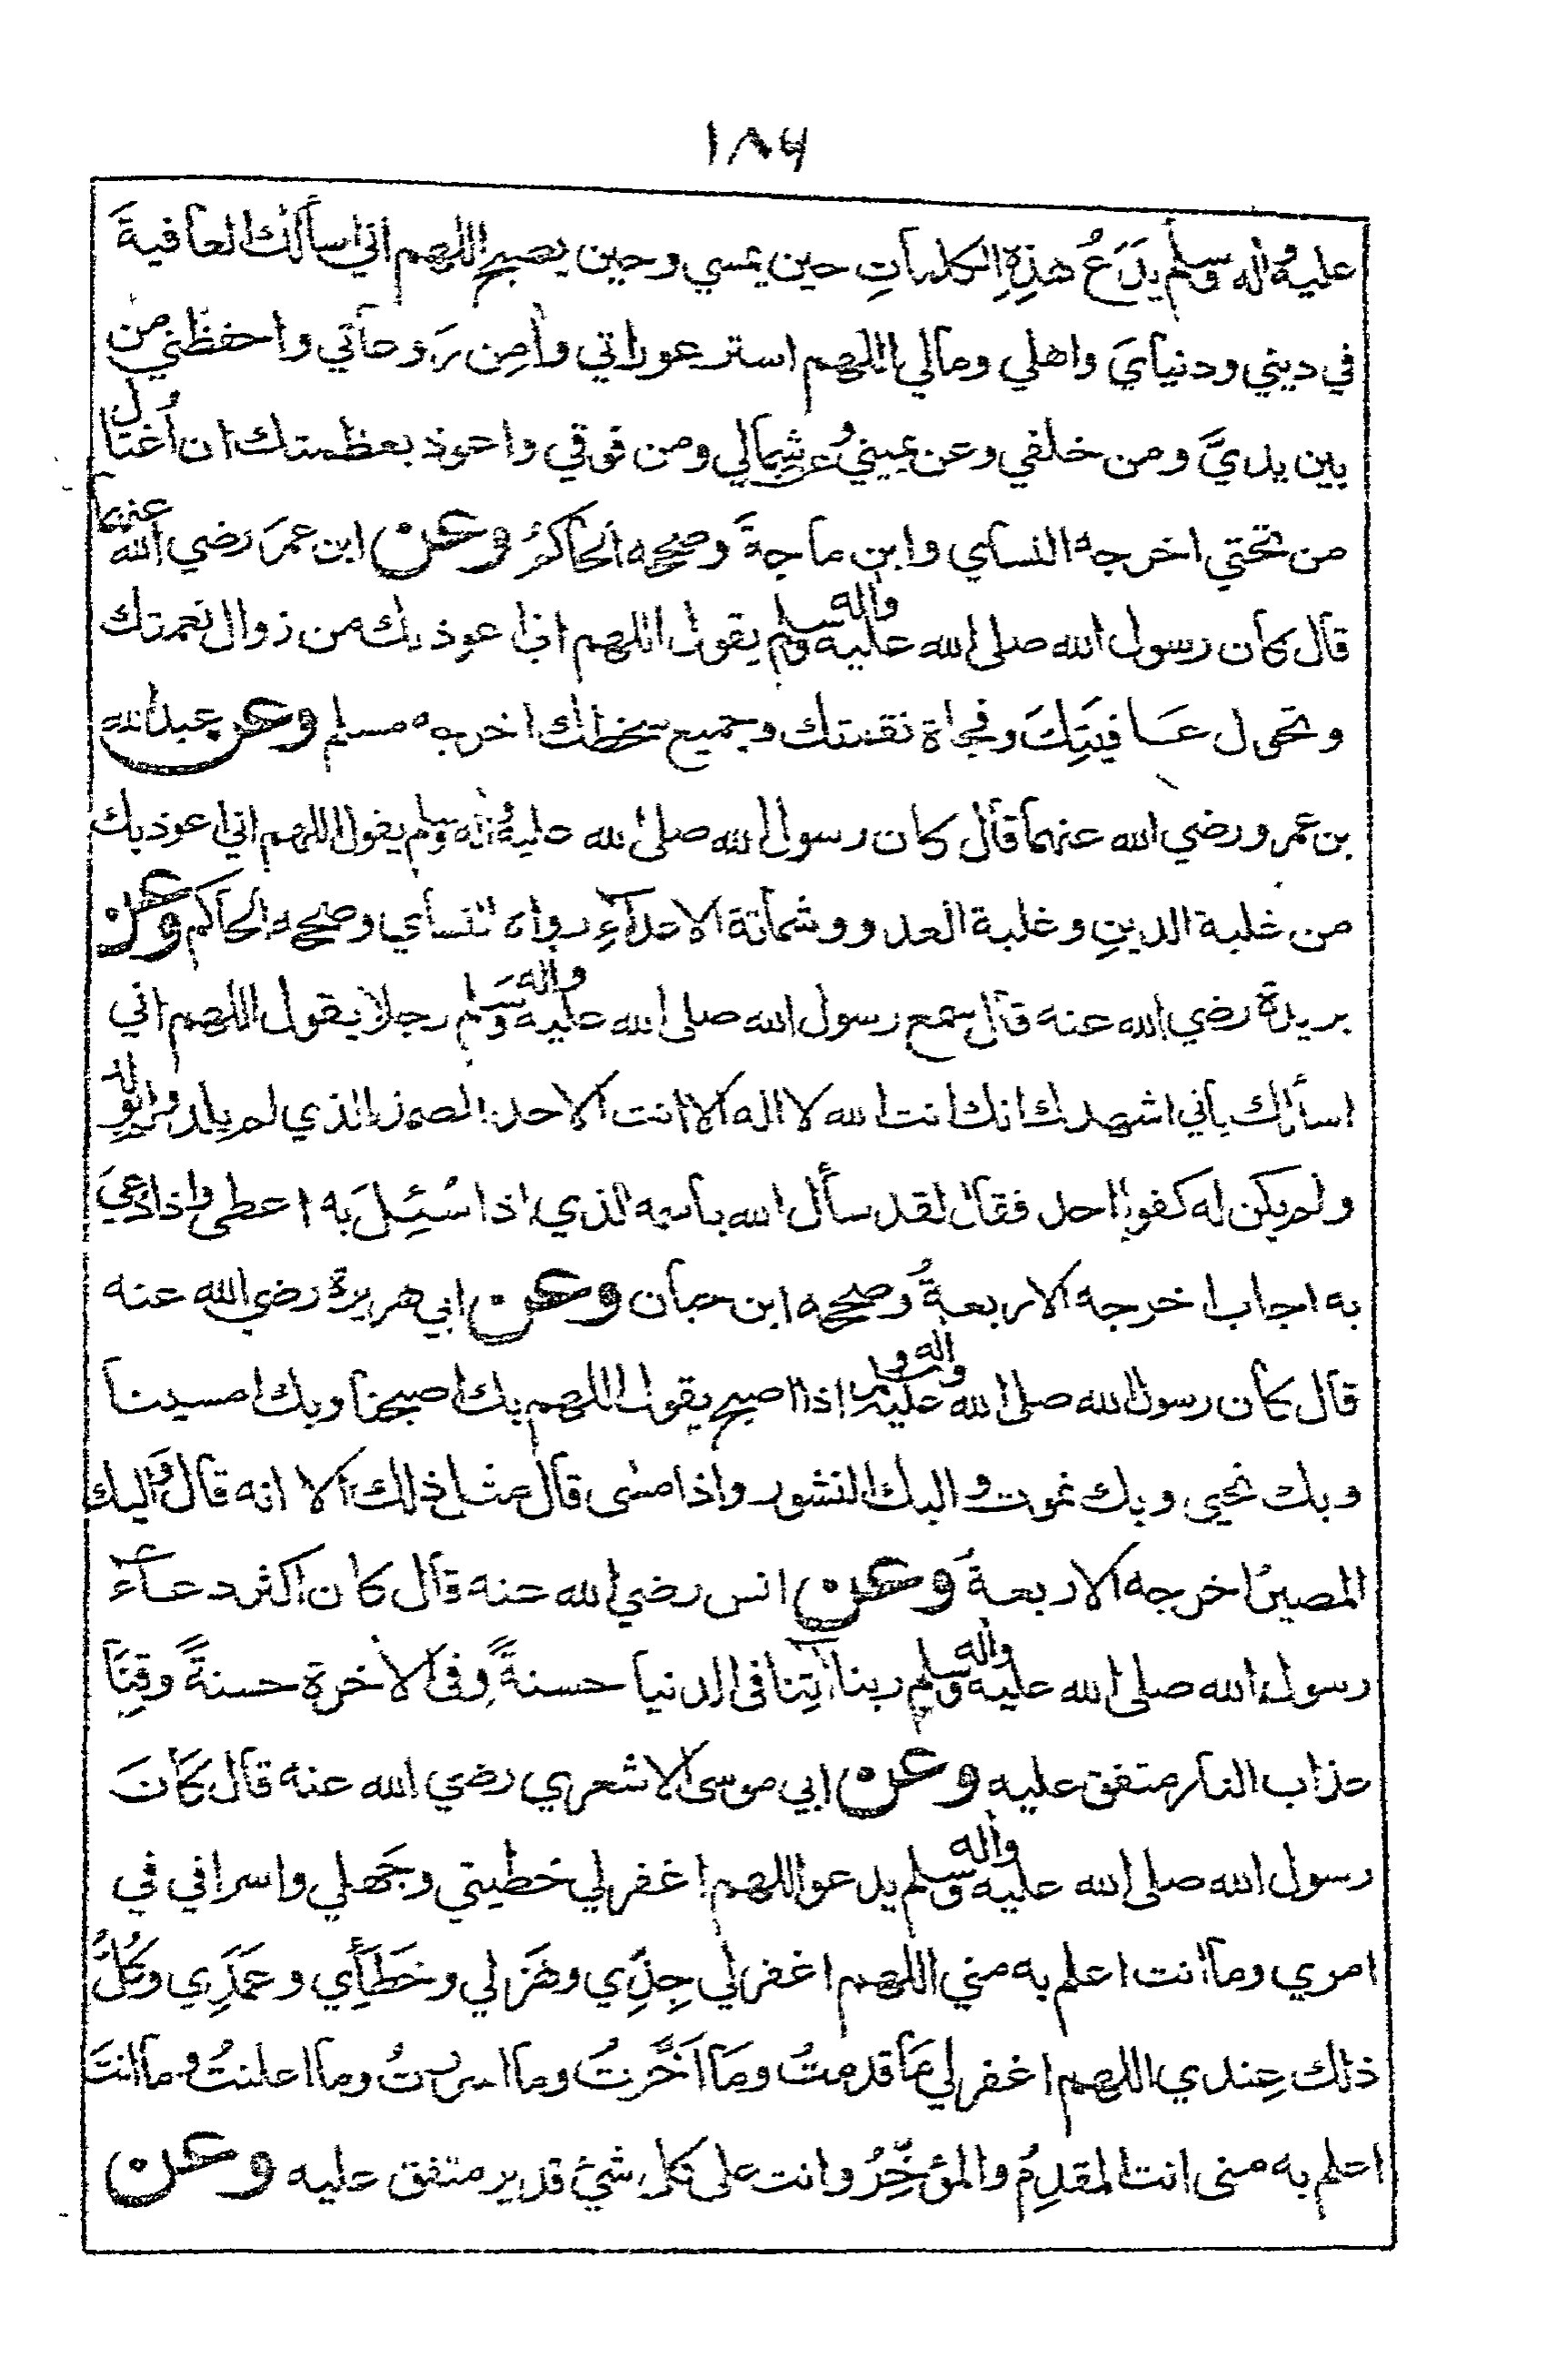 ١٨٦
عليه واله وسلم يدَعُ هذِهِ الكلمات حين يمسي وحين يصبح اللهم اني اسألك العافيةَ
في ديني ودنيايَ واهلي ومالي اللهم استر عوراتي وأمِن رَوعاتي واحفظني من
بين يديَّ ومن خلفي وعن يميني وعن شِمالي ومن فوقي واعوذ بعظمتك ان أُغتال
من تحتي اخرجه النساي وابن ماجةَ وصححه الحاكمُ وعن ابن عمرَ رضي الله عنهما
قال كان رسول الله صلى الله عليه واله وسلم يقول اللهم اني اعوذ بك من زوال نعمتك
وتحول عافيتِكَ وفجاة نقمتك وجميع سخطك اخرجه مسلم وعن عبد الله
بن عمرو رضي الله عنهما قال كان رسول الله صلى الله عليه واله وسلم يقول اللهم اني اعوذ بك
من غلبة الدينِ وغلبة العدو وشماتة الاعدآءِ رواه النساي وصححه الحاكم وعن
بريدة رضي الله عنه قال سمع رسول الله صلى الله عليه واله وسلم رجلا يقول اللهم اني
اسألك بأني اشهد لك انك انت الله لا اله الا انت الاحد الصمد الذي لم يلد ولم يولد
ولم يكن له كفوا احد فقال لقد سأل الله باسمه الذي اذا سُئِلَ به اعطى واذا دُعيَ
به اجاب اخرجه الاربعةُ وصححه ابن حبان وعن ابي هريرة رضي الله عنه
قال كان رسول الله صلى الله عليه واله وسلم اذا اصبح يقول اللهم بك اصبحنا وبك امسينا
وبك نحيى وبك نموت واليك النشور واذا امسى قال مثل ذلك الا انه قال واليك
المصير اخرجه الاربعةَ وعن انس رضي الله عنه قال كان اكثر دعآءِ
رسول الله صلى الله عليه واله وسلم ربنا آتِنا فى الدنيا حسنةً وفى الاخرة حسنةً وقِنَا
عذاب النار متفق عليه وعن ابي موسى الاشعري رضي الله عنه قال كَانَ
رسول الله صلى الله عليه واله وسلم يدعو اللهم اغفر لي خطيتي وجَهلي واسرافي في
امري وما انت اعلم به مني اللهم اغفر لي جِدِّي وهَزلي وخَطَأِي وعَمَدِي وكُلُّ
ذلك عِندي اللهم اغفر لي مَا قدمتُ ومَا اَخَّرتُ وما اسررتُ وما اعلنتُ وما انتَ
اعلم به منى انت المقدِمُ والمؤخِّرُ وانت على كل شئ قدير متفق عليه وعن